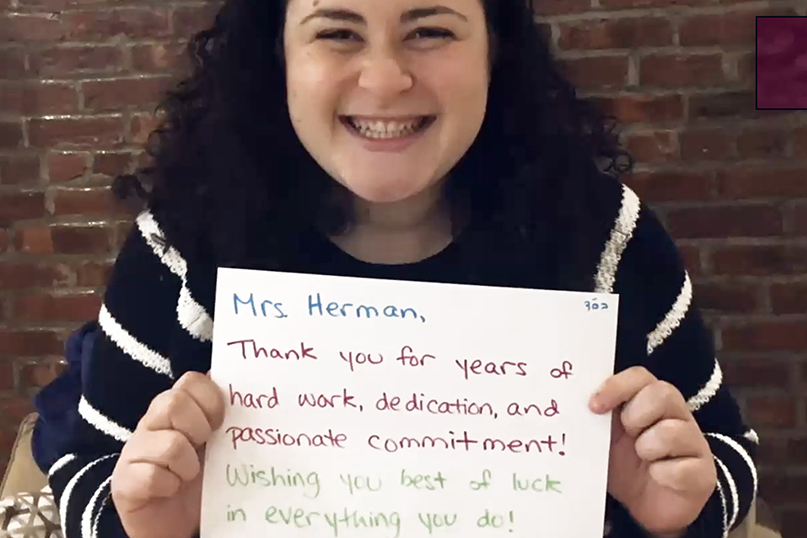 Mrs. Herman,
Thank you for years of
hard work, dedication, and
passionate commitment!
Wishing you best of luck
in everything you do!